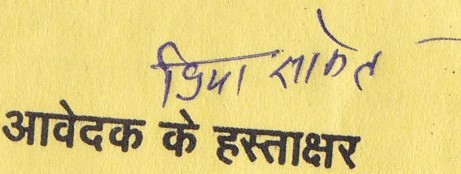 प्रिया साकेत
आवेदक के हस्ताक्षर